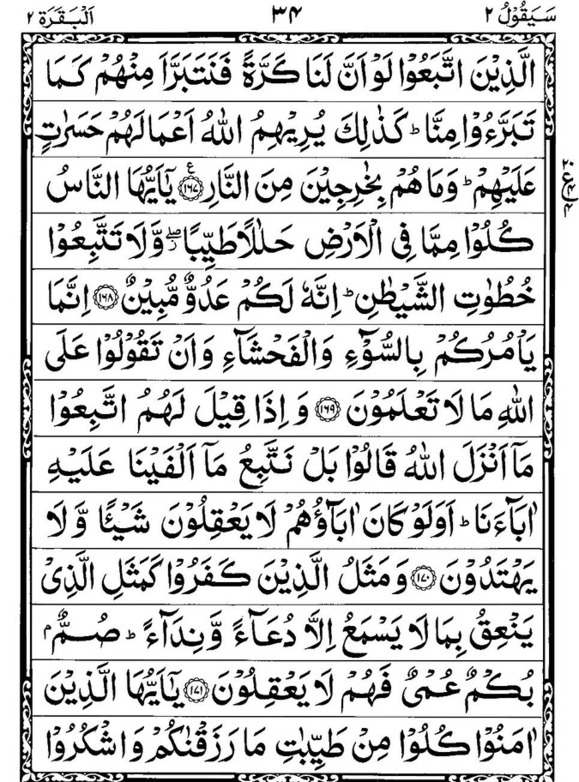 سَيَقُوْلُ ٢ ٣٤ اَلْبَقَرَة ٢
الَّذِيْنَ اتَّبَعُوْا لَوْ اَنَّ لَنَا كَرَّةً فَنَتَبَرَّاَ مِنْهُمْ كَمَا
تَبَرَّءُوْا مِنَّا ؕ كَذٰلِكَ يُرِيْهِمُ اللّٰهُ اَعْمَالَهُمْ حَسَرٰتٍ
عَلَيْهِمْ ؕ وَمَا هُمْ بِخٰرِجِيْنَ مِنَ النَّارِ ﴿١٦٧﴾ ع يٰۤاَيُّهَا النَّاسُ
كُلُوْا مِمَّا فِى الْاَرْضِ حَلٰلًا طَيِّبًا ۖ وَّلَا تَتَّبِعُوْا
خُطُوٰتِ الشَّيْطٰنِ ؕ اِنَّهٗ لَكُمْ عَدُوٌّ مُّبِيْنٌ ﴿١٦٨﴾ اِنَّمَا
يَاْمُرُكُمْ بِالسُّوْٓءِ وَالْفَحْشَآءِ وَاَنْ تَقُوْلُوْا عَلَى
اللّٰهِ مَا لَا تَعْلَمُوْنَ ﴿١٦٩﴾ وَاِذَا قِيْلَ لَهُمُ اتَّبِعُوْا
مَاۤ اَنْزَلَ اللّٰهُ قَالُوْا بَلْ نَتَّبِعُ مَاۤ اَلْفَيْنَا عَلَيْهِ
اٰبَآءَنَا ؕ اَوَلَوْ كَانَ اٰبَآؤُهُمْ لَا يَعْقِلُوْنَ شَيْـًٔا وَّلَا
يَهْتَدُوْنَ ﴿١٧٠﴾ وَمَثَلُ الَّذِيْنَ كَفَرُوْا كَمَثَلِ الَّذِىْ
يَنْعِقُ بِمَا لَا يَسْمَعُ اِلَّا دُعَآءً وَّنِدَآءً ؕ صُمٌّۢ
بُكْمٌ عُمْىٌ فَهُمْ لَا يَعْقِلُوْنَ ﴿١٧١﴾ يٰۤاَيُّهَا الَّذِيْنَ
اٰمَنُوْا كُلُوْا مِنْ طَيِّبٰتِ مَا رَزَقْنٰكُمْ وَاشْكُرُوْا